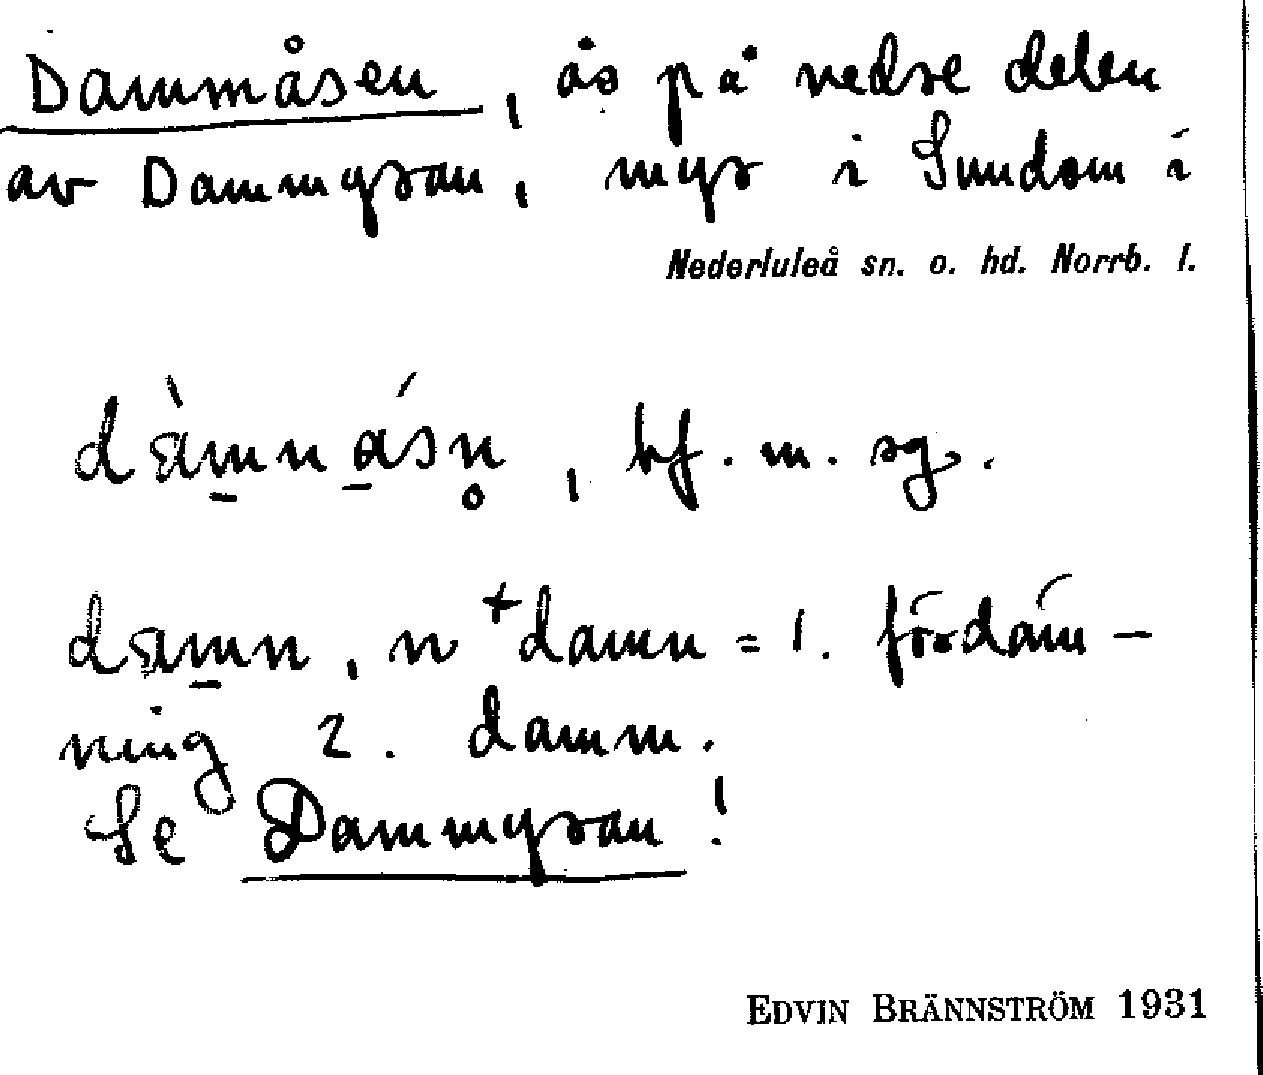 Dammåsen, ås på nedre delen
av Dammyran, myr i Sundom i
Nederluleå sn. o. hd. Norrb. l.
dàm̱na̱śn̥, bf. m. sg.
dam̱n, n + damn = 1. fördäm-
ning 2. damm.
Se Dammyran!
EDVIN BRÄNNSTRÖM 1931